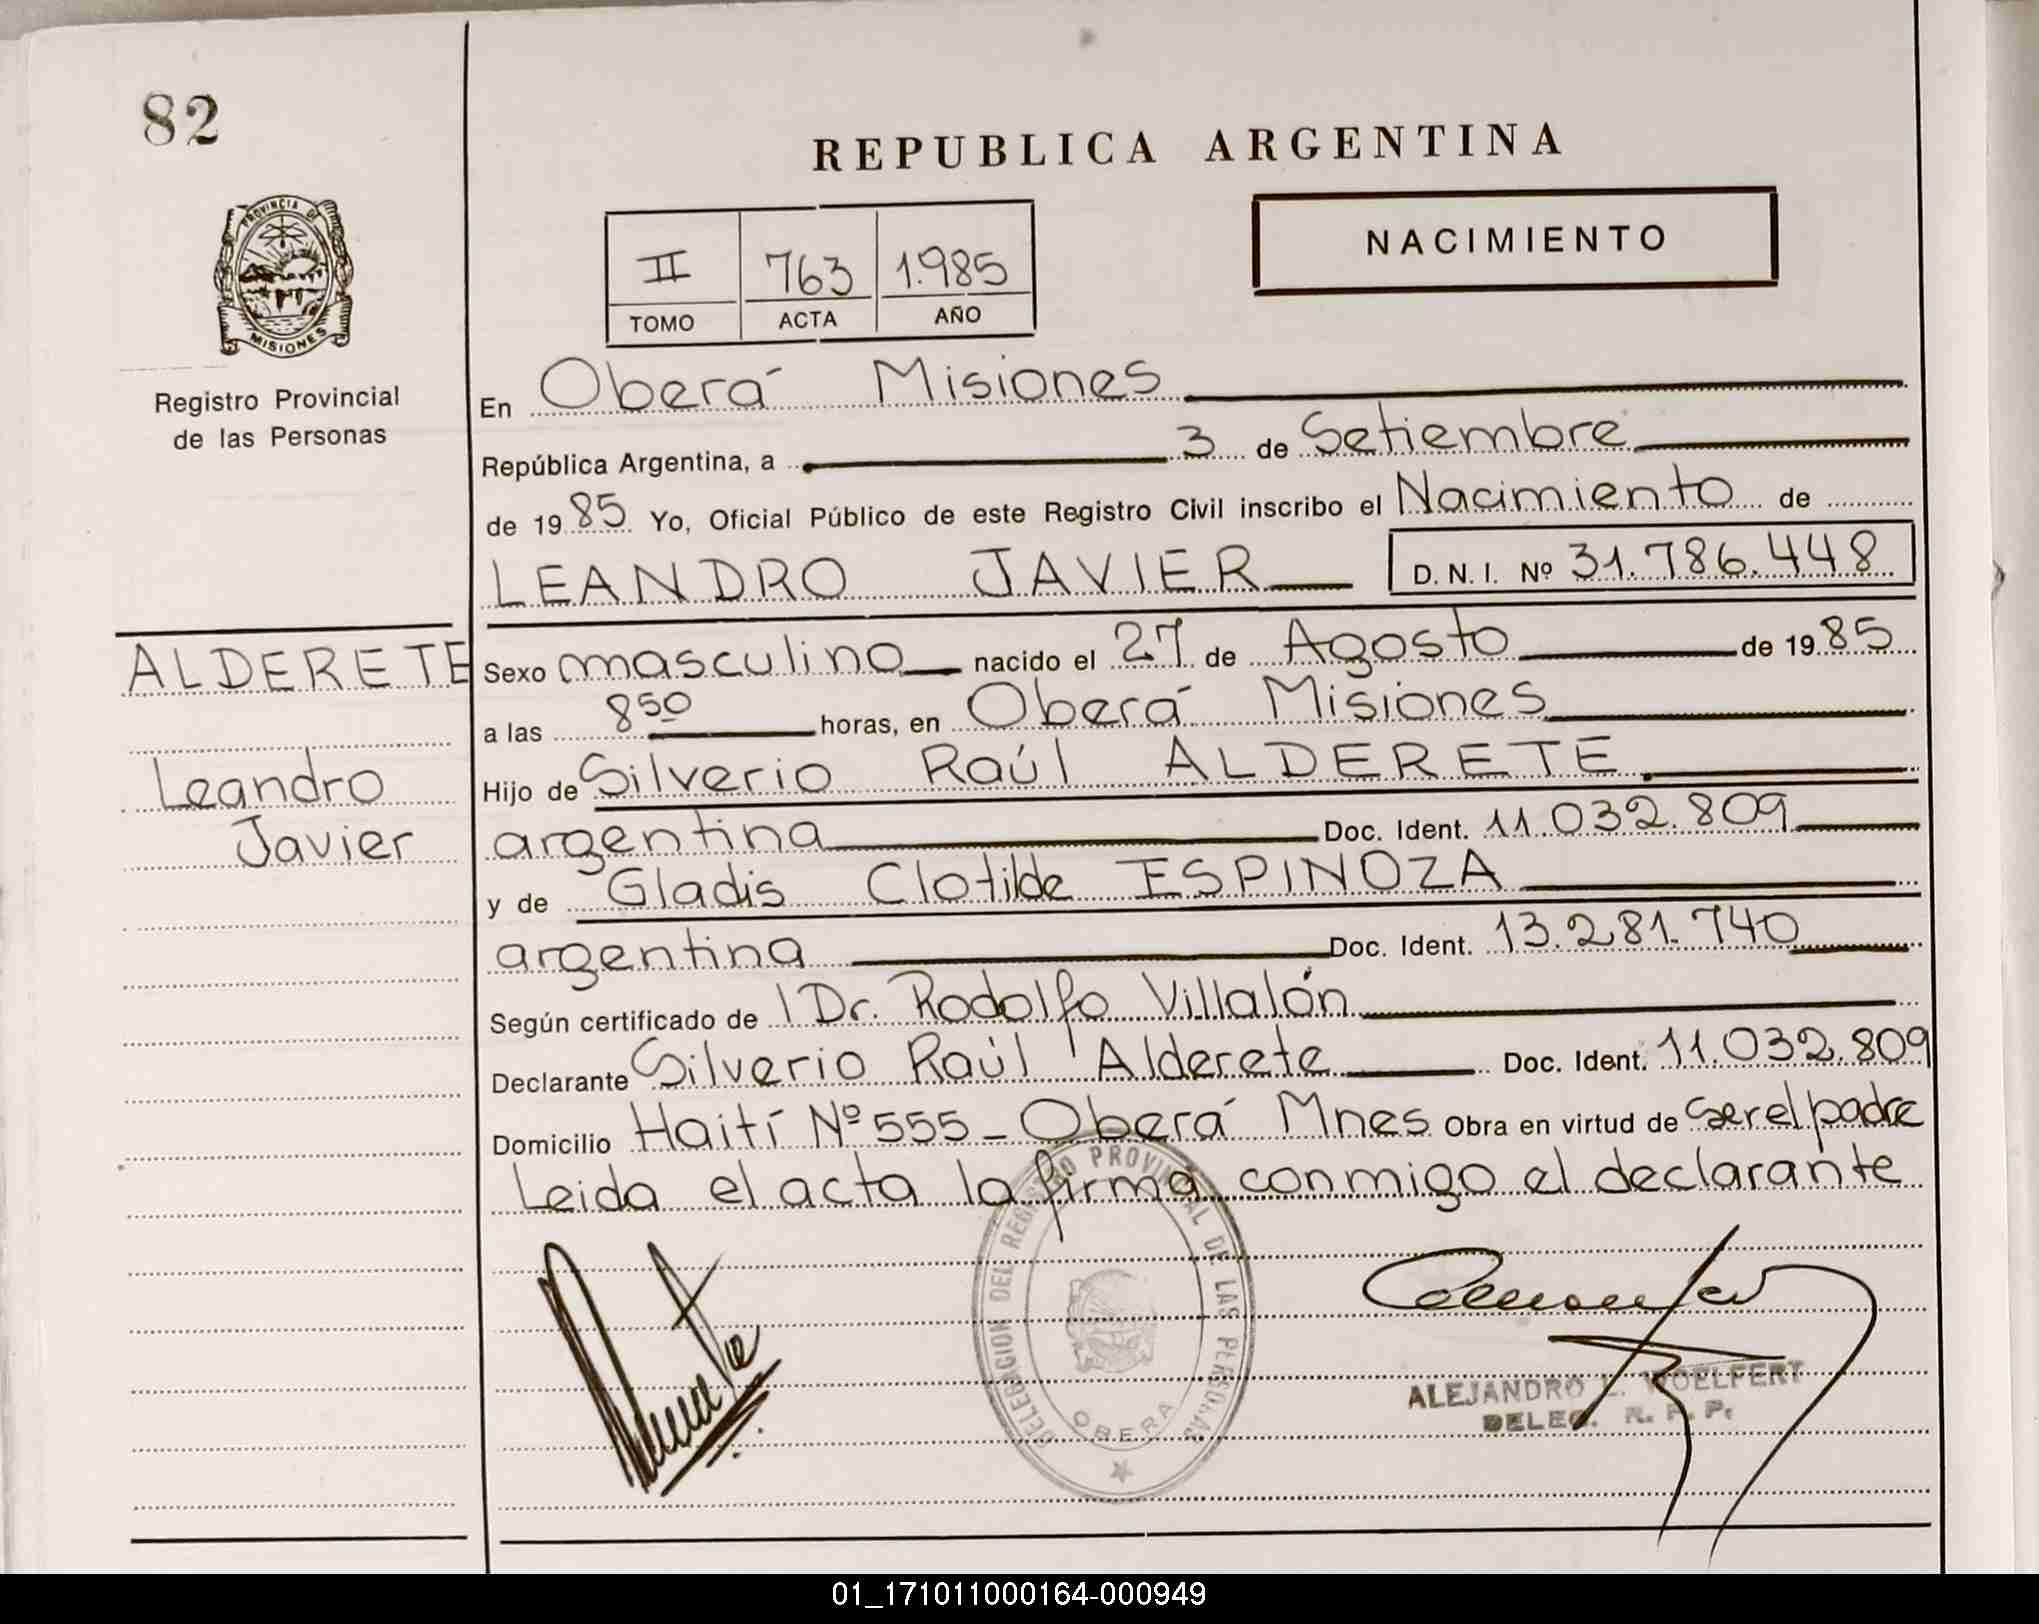 82
REPUBLICA ARGENTINA
PROVINCIA DE
MISIONES
Registro Provincial
de las Personas
II 763 1.985
TOMO ACTA AÑO
NACIMIENTO
En Oberá Misiones
República Argentina, a 3 de Setiembre
de 1985 Yo, Oficial Público de este Registro Civil inscribo el Nacimiento de
LEANDRO JAVIER D.N.I. Nº 31.786.448
ALDERETE
Leandro
Javier
Sexo masculino nacido el 27 de Agosto de 1985
a las 8⁵⁰ horas, en Oberá Misiones
Hijo de Silverio Raúl ALDERETE
argentina Doc. Ident. 11.032.809
y de Gladis Clotilde ESPINOZA
argentina Doc. Ident. 13.281.740
Según certificado de Dr. Rodolfo Villalón
Declarante Silverio Raúl Alderete Doc. Ident. 11.032.809
Domicilio Haití Nº 555 - Oberá Mnes Obra en virtud de ser el padre
Leida el acta la firma conmigo el declarante
DELEGACION DEL REGISTRO PROVINCIAL DE LAS PERSONAS
OBERA
ALEJANDRO L. WOELFERT
DELEG. R. P. P.
01_171011000164-000949